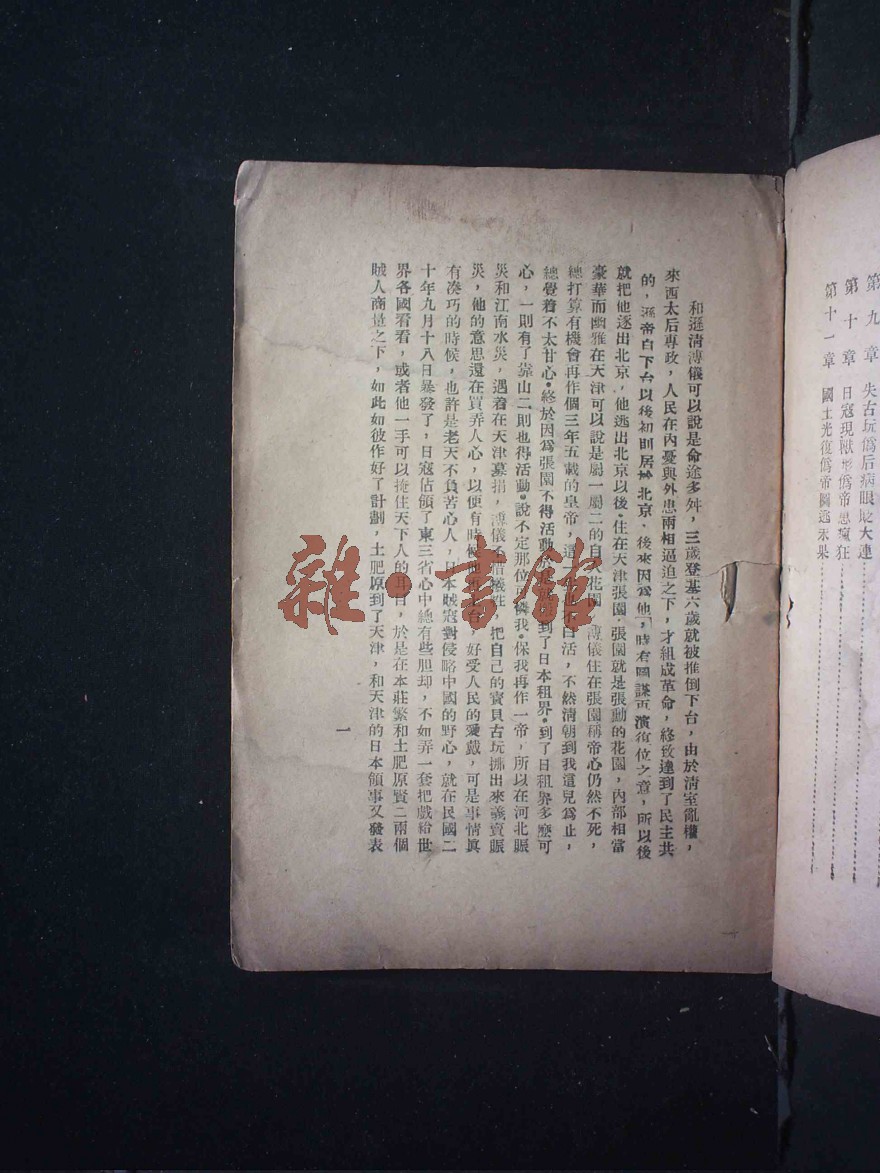 第九章 失古玩偽后病眼赴大連
第十章 日寇現獸形偽帝患瘋狂
第十一章 國土光復偽帝圖逃未果
和遜清溥儀可以說是命途多舛，三歲登基六歲就被推倒下台，由於清室亂權，
來西太后專政，人民在內憂與外患兩相逼迫之下，才組成革命，終致達到了民主共
的，遜帝自下台以後初則居於北京，後來因爲他，時有圖謀再演復位之意，所以後
就把他逐出北京，他逃出北京以後。住在天津張園。張園就是張勳的花園，內部相當
豪華而幽雅在天津可以說是屬一屬二的自 花園 溥儀住在張園稱帝心仍然不死，
總打算有機會再作個三年五載的皇帝，這 白活，不然清朝到我這兒爲止，
總覺着不太甘心。終於因爲張園不得活動 到了日本租界。到了日租界多麼可
心，一則有了靠山二則也得活動。說不定那位 憐我。保我再作一帝，所以在河北賑
災和江南水災，遇着在天津募捐，溥儀不惜犧牲，把自己的寶貝古玩挪出來義賣賑
災，他的意思還在買弄人心，以便有時候 台，好受人民的愛戴，可是事情眞
有凑巧的時候，也許是老天不負苦心人，日本賊寇對侵略中國的野心，就在民國二
十年九月十八日暴發了，日寇佔領了東三省心中總有些胆却，不如弄一套把戲給世
界各國看看，或者他一手可以掩住天下人的耳目，於是在本莊繁和土肥原賢二兩個
賊人商量之下，如此如彼作好了計劃，土肥原到了天津，和天津的日本領事又發表
一
雜·書館